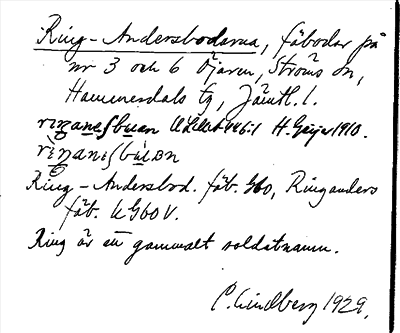 Ring-Andersbodarna, fäbodar på
nr 3 och 6 Öjaren, Ströms sn,
Hammerdals tg, Jämtl. l.
H. Geijer 1910.
Ring-Andersbod. fäb. G60, Ringanders
fäb. k G60 V.
Ring är ett gammalt soldatnamn.
C. Lindberg 1929.